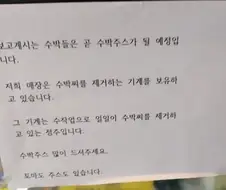 보고계시는 수박들은 곧 수박주스가 될 예정입
니다.
저희 매장은 수박씨를 제거하는 기계를 보유하
고 있습니다.
그 기계는 수작업으로 일일이 수박씨를 제거하
고 있는 점주입니다.
수박주스 많이 드셔주세요.
토마토 주스도 있습니다.